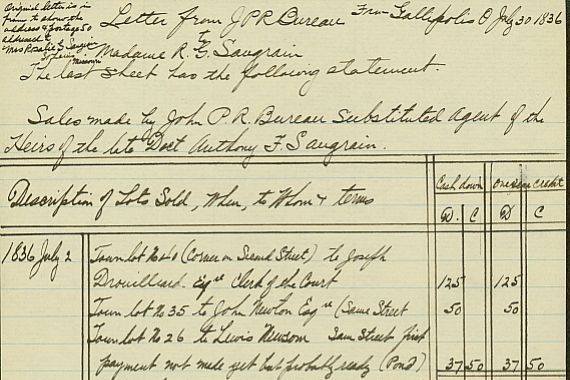 Original letter is in
frame to show the
address & postage 50
addressed to
Mrs Rosalie G Saugrain
St Louis
Missouri
Letter from J P R Bureau From Gallipolis O July 30 1836
to
Madame R. G. Saugrain
The last sheet has the following statement.
Sales made by John P. R. Bureau Substituted Agent of the
Heirs of the late Doct Anthony F. Saugrain.
Description of Lots Sold, When, to Whom & terms
Cash down One year credit
D. C D C
1836 July 2 Town lot No 40 (Corner on Second Street) to Joseph
Drouilliard Esqre Clerk of the Court 125 125
Town lot No 35 to John Newton Esqre (Same Street 50 50
Town lot No 26 to Lewis Newsom Sam Street first
payment not made yet but probably ready (Pond) 37 50 37 50